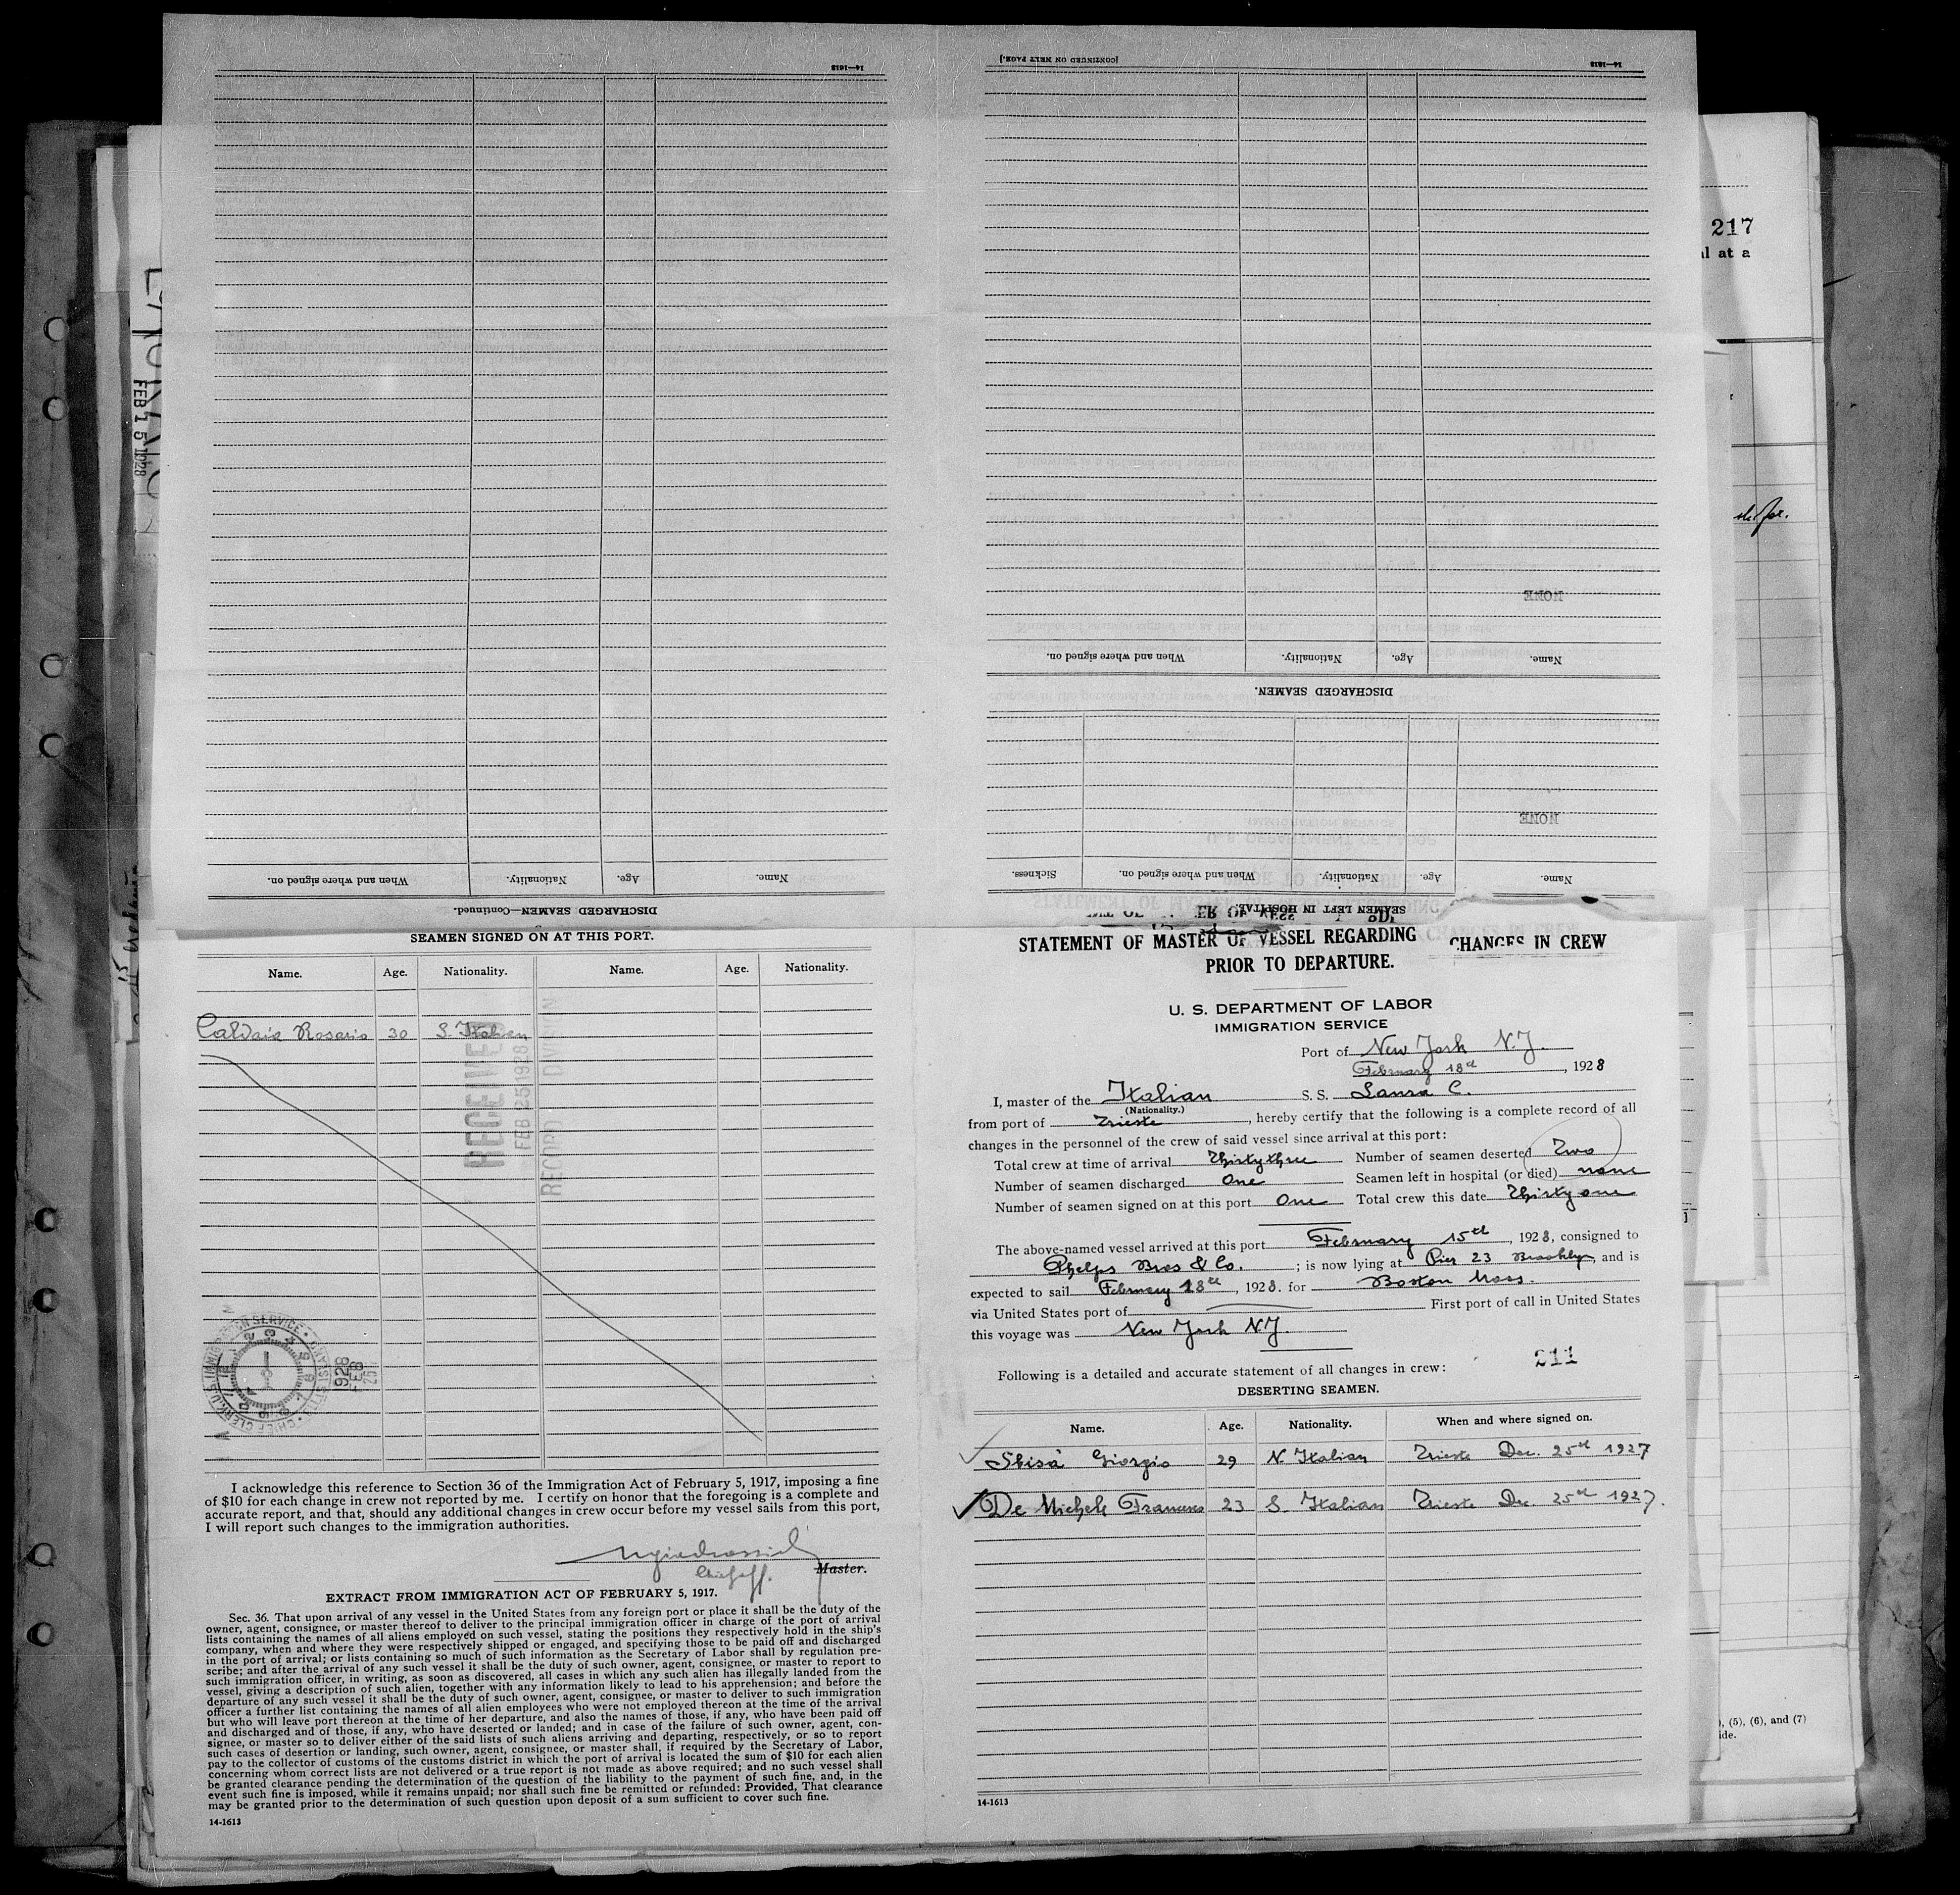 14—1613
[CONTINUED ON NEXT PAGE.]
14—1613
217
al at a
FEB 15 1928
NONE
Name.
Age.
Nationality.
When and where signed on.
DISCHARGED SEAMEN.
NONE
Name.
Age.
Nationality.
When and where signed on.
Sickness.
SEAMEN LEFT IN HOSPITAL.
Name.
Age.
Nationality.
When and where signed on.
DISCHARGED SEAMEN—Continued.
SEAMEN SIGNED ON AT THIS PORT.
Name. Age. Nationality. Name. Age. Nationality.
Caldaia Rosario 30 S. Italian
RECEIVED
FEB 25 1928
RECORD DIVISION
1928
FEB
25
I acknowledge this reference to Section 36 of the Immigration Act of February 5, 1917, imposing a fine
of $10 for each change in crew not reported by me. I certify on honor that the foregoing is a complete and
accurate report, and that, should any additional changes in crew occur before my vessel sails from this port,
I will report such changes to the immigration authorities.
Master.
Chief off.
EXTRACT FROM IMMIGRATION ACT OF FEBRUARY 5, 1917.
Sec. 36. That upon arrival of any vessel in the United States from any foreign port or place it shall be the duty of the
owner, agent, consignee, or master thereof to deliver to the principal immigration officer in charge of the port of arrival
lists containing the names of all aliens employed on such vessel, stating the positions they respectively hold in the ship's
company, when and where they were respectively shipped or engaged, and specifying those to be paid off and discharged
in the port of arrival; or lists containing so much of such information as the Secretary of Labor shall by regulation pre-
scribe; and after the arrival of any such vessel it shall be the duty of such owner, agent, consignee, or master to report to
such immigration officer, in writing, as soon as discovered, all cases in which any such alien has illegally landed from the
vessel, giving a description of such alien, together with any information likely to lead to his apprehension; and before the
departure of any such vessel it shall be the duty of such owner, agent, consignee, or master to deliver to such immigration
officer a further list containing the names of all alien employees who were not employed thereon at the time of the arrival
but who will leave port thereon at the time of her departure, and also the names of those, if any, who have been paid off
and discharged and of those, if any, who have deserted or landed; and in case of the failure of such owner, agent, con-
signee, or master so to deliver either of the said lists of such aliens arriving and departing, respectively, or so to report
such cases of desertion or landing, such owner, agent, consignee, or master shall, if required by the Secretary of Labor,
pay to the collector of customs of the customs district in which the port of arrival is located the sum of $10 for each alien
concerning whom correct lists are not delivered or a true report is not made as above required; and no such vessel shall
be granted clearance pending the determination of the question of the liability to the payment of such fine, and, in the
event such fine is imposed, while it remains unpaid; nor shall such fine be remitted or refunded: Provided, That clearance
may be granted prior to the determination of such question upon deposit of a sum sufficient to cover such fine.
14-1613
STATEMENT OF MASTER OF VESSEL REGARDING CHANGES IN CREW
PRIOR TO DEPARTURE.
U. S. DEPARTMENT OF LABOR
IMMIGRATION SERVICE
Port of New York N.J.
February 18th, 1928
I, master of the Italian S. S. Laura C.
(Nationality.)
from port of Trieste, hereby certify that the following is a complete record of all
changes in the personnel of the crew of said vessel since arrival at this port:
Total crew at time of arrival Thirtythree Number of seamen deserted Two
Number of seamen discharged One Seamen left in hospital (or died) none
Number of seamen signed on at this port One Total crew this date Thirty one
The above-named vessel arrived at this port February 15th, 1928, consigned to
Phelps Bros & Co. ; is now lying at Pier 23 Brooklyn, and is
expected to sail February 18th, 1928. for Boston Mass.
via United States port of First port of call in United States
this voyage was New York NJ.
Following is a detailed and accurate statement of all changes in crew: 211
DESERTING SEAMEN.
Name. Age. Nationality. When and where signed on.
Sbisà Giorgio 29 N. Italian Trieste Dec. 25th 1927
De Michele Francesco 23 S. Italian Trieste Dec 25th 1927.
14-1613
), (5), (6), and (7)
ide.